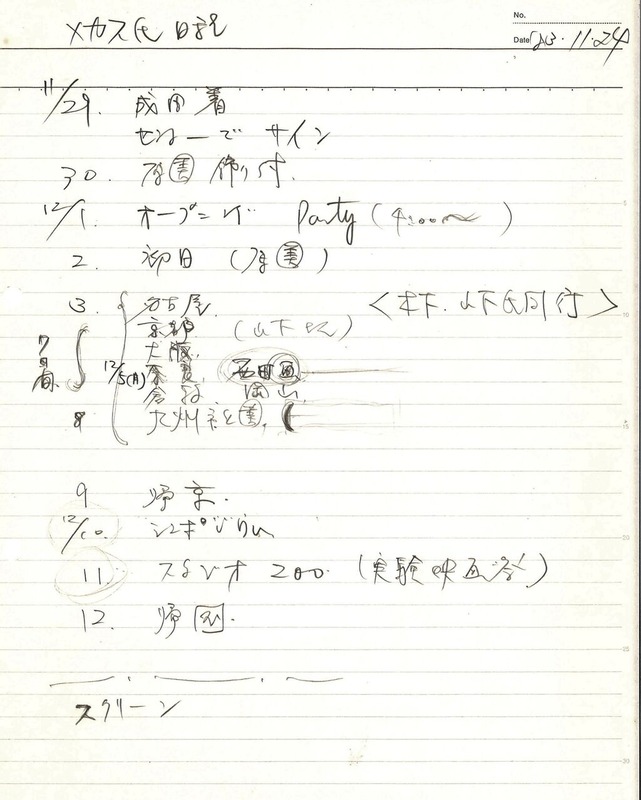 メカス氏 日記
No.
Date '83・11・24
11/29. 成田着
センターで サイン
30. 原美 飾り付.
12/1. オープニング Party (4:00〜)
2. 初日 (原美)
3. 名古屋. <木下. 山下氏同行>
京都. (山下氏)
大阪.
7日間 12/5(月) 奈良. 西田画
倉敷. 岡山.
8 九州 美.
9 帰京.
12/10. シンポジウム
11. スタジオ 200. (実験映画祭)
12. 帰国.
スクリーン